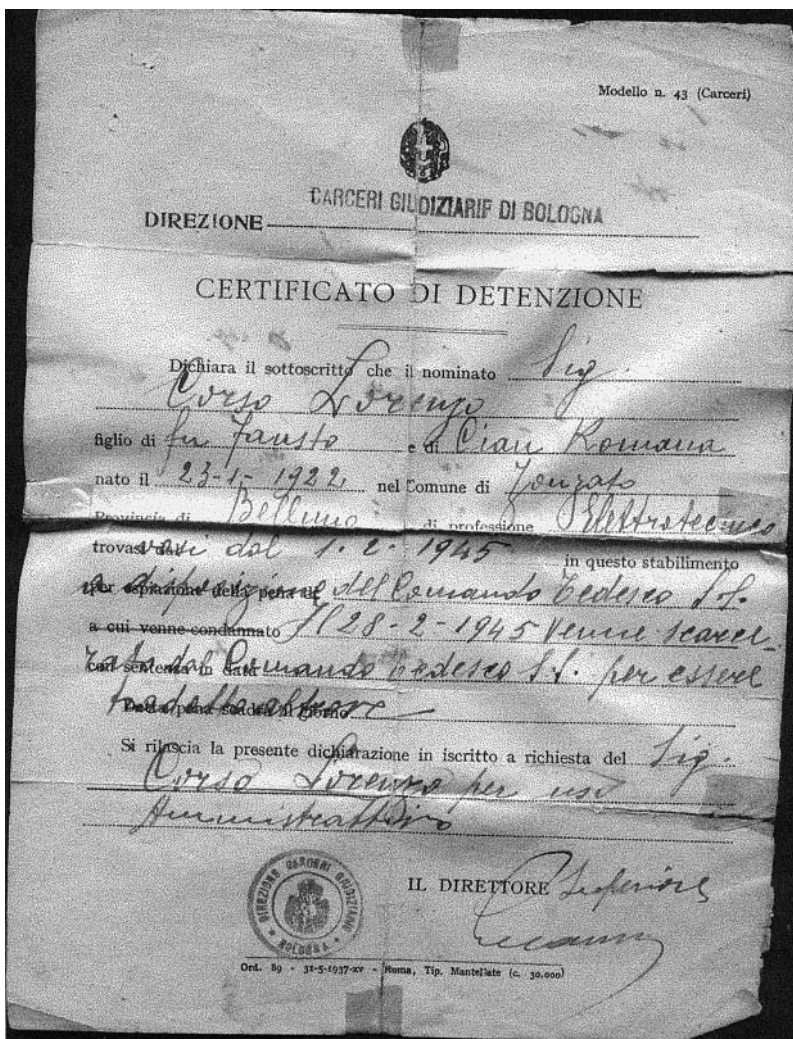 Modello n. 43 (Carceri)
CARCERI GIUDIZIARIE DI BOLOGNA
DIREZIONE
CERTIFICATO DI DETENZIONE
Dichiara il sottoscritto che il nominato Sig.
Corso Lorenzo
figlio di fu Fausto e di Cian Romana
nato il 23-1-1922 nel Comune di
Provincia di Belluno di professione Elettrotecnico
trovavasi dal 1.2.1945 in questo stabilimento
a disposizione del Comando Tedesco S.S.
a cui venne condannato Il 28-2-1945 Venne scarce-
rato dal Comando Tedesco S.S. per essere
tradotto altrove
Si rilascia la presente dichiarazione in iscritto a richiesta del Sig.
Corso Lorenzo per uso
Amministrativo
IL DIRETTORE Superiore
DIREZIONE CARCERI GIUDIZIARIE
BOLOGNA
Ord. 89 - 31-5-1937-xv - Roma, Tip. Mantellate (c. 30.000)